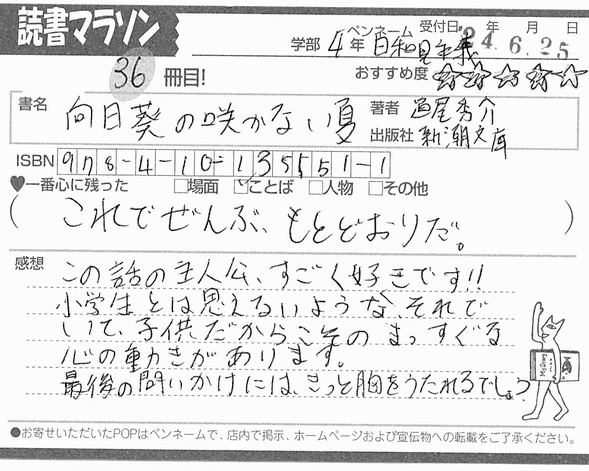 読書マラソン
学部 4年 ペンネーム 日和見主義
受付日 年 月 日
'24.6.25
36 冊目!
おすすめ度 ☆☆☆☆☆
書名 向日葵の咲かない夏
著者 道尾秀介
出版社 新潮文庫
ISBN 978-4-10-135551-1
♥一番心に残った □場面 ☑ことば □人物 □その他
(これでぜんぶ、もとどおりだ。)
感想
この話の主人公、すごく好きです!!
小学生とは思えないような、それで
いて、子供だからこそのまっすぐな
心の動きがあります。
最後の問いかけには、きっと胸をうたれるでしょう
●お寄せいただいたPOPはペンネームで、店内で掲示、ホームページおよび宣伝物への転載をご了承ください。